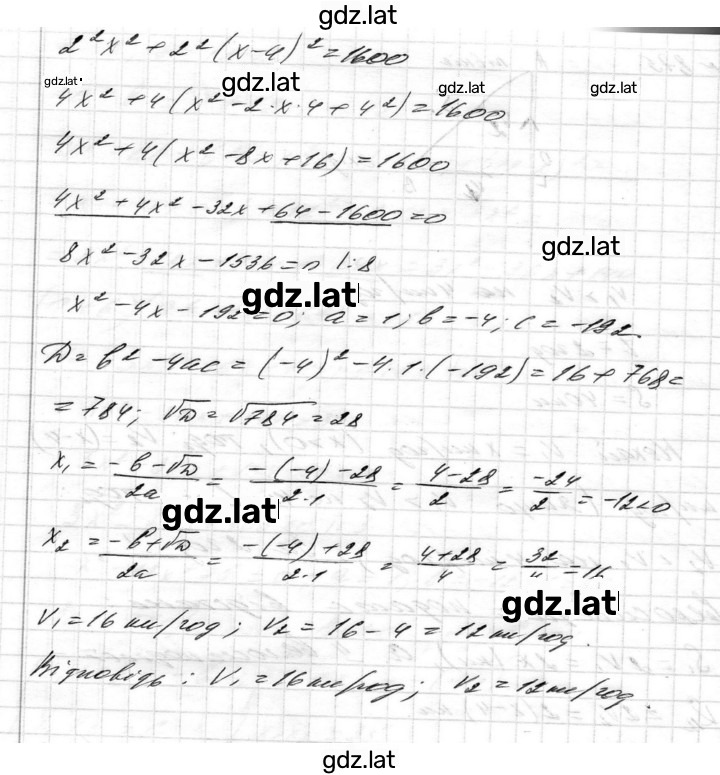 gdz.lat
2²x² + 2²(x-4)² = 1600
gdz.lat gdz.lat gdz.lat gdz.lat
4x² + 4(x² - 2·x·4 + 4²) = 1600
4x² + 4(x² - 8x + 16) = 1600
4x² + 4x² - 32x + 64 - 1600 = 0
gdz.lat
8x² - 32x - 1536 = 0 |:8
gdz.lat
x² - 4x - 192 = 0; a = 1; b = -4; c = -192.
D = b² - 4ac = (-4)² - 4·1·(-192) = 16 + 768 =
= 784; √D = √784 = 28
x₁ = (-b-√D)/2a = (-(-4)-28)/2·1 = (4-28)/2 = -24/2 = -12 < 0
gdz.lat
x₂ = (-b+√D)/2a = (-(-4)+28)/2·1 = (4+28)/4 = 32/4 = 16
gdz.lat
V₁ = 16 км/год; V₂ = 16 - 4 = 12 км/год.
Відповідь: V₁ = 16 км/год; V₂ = 12 км/год.
gdz.lat